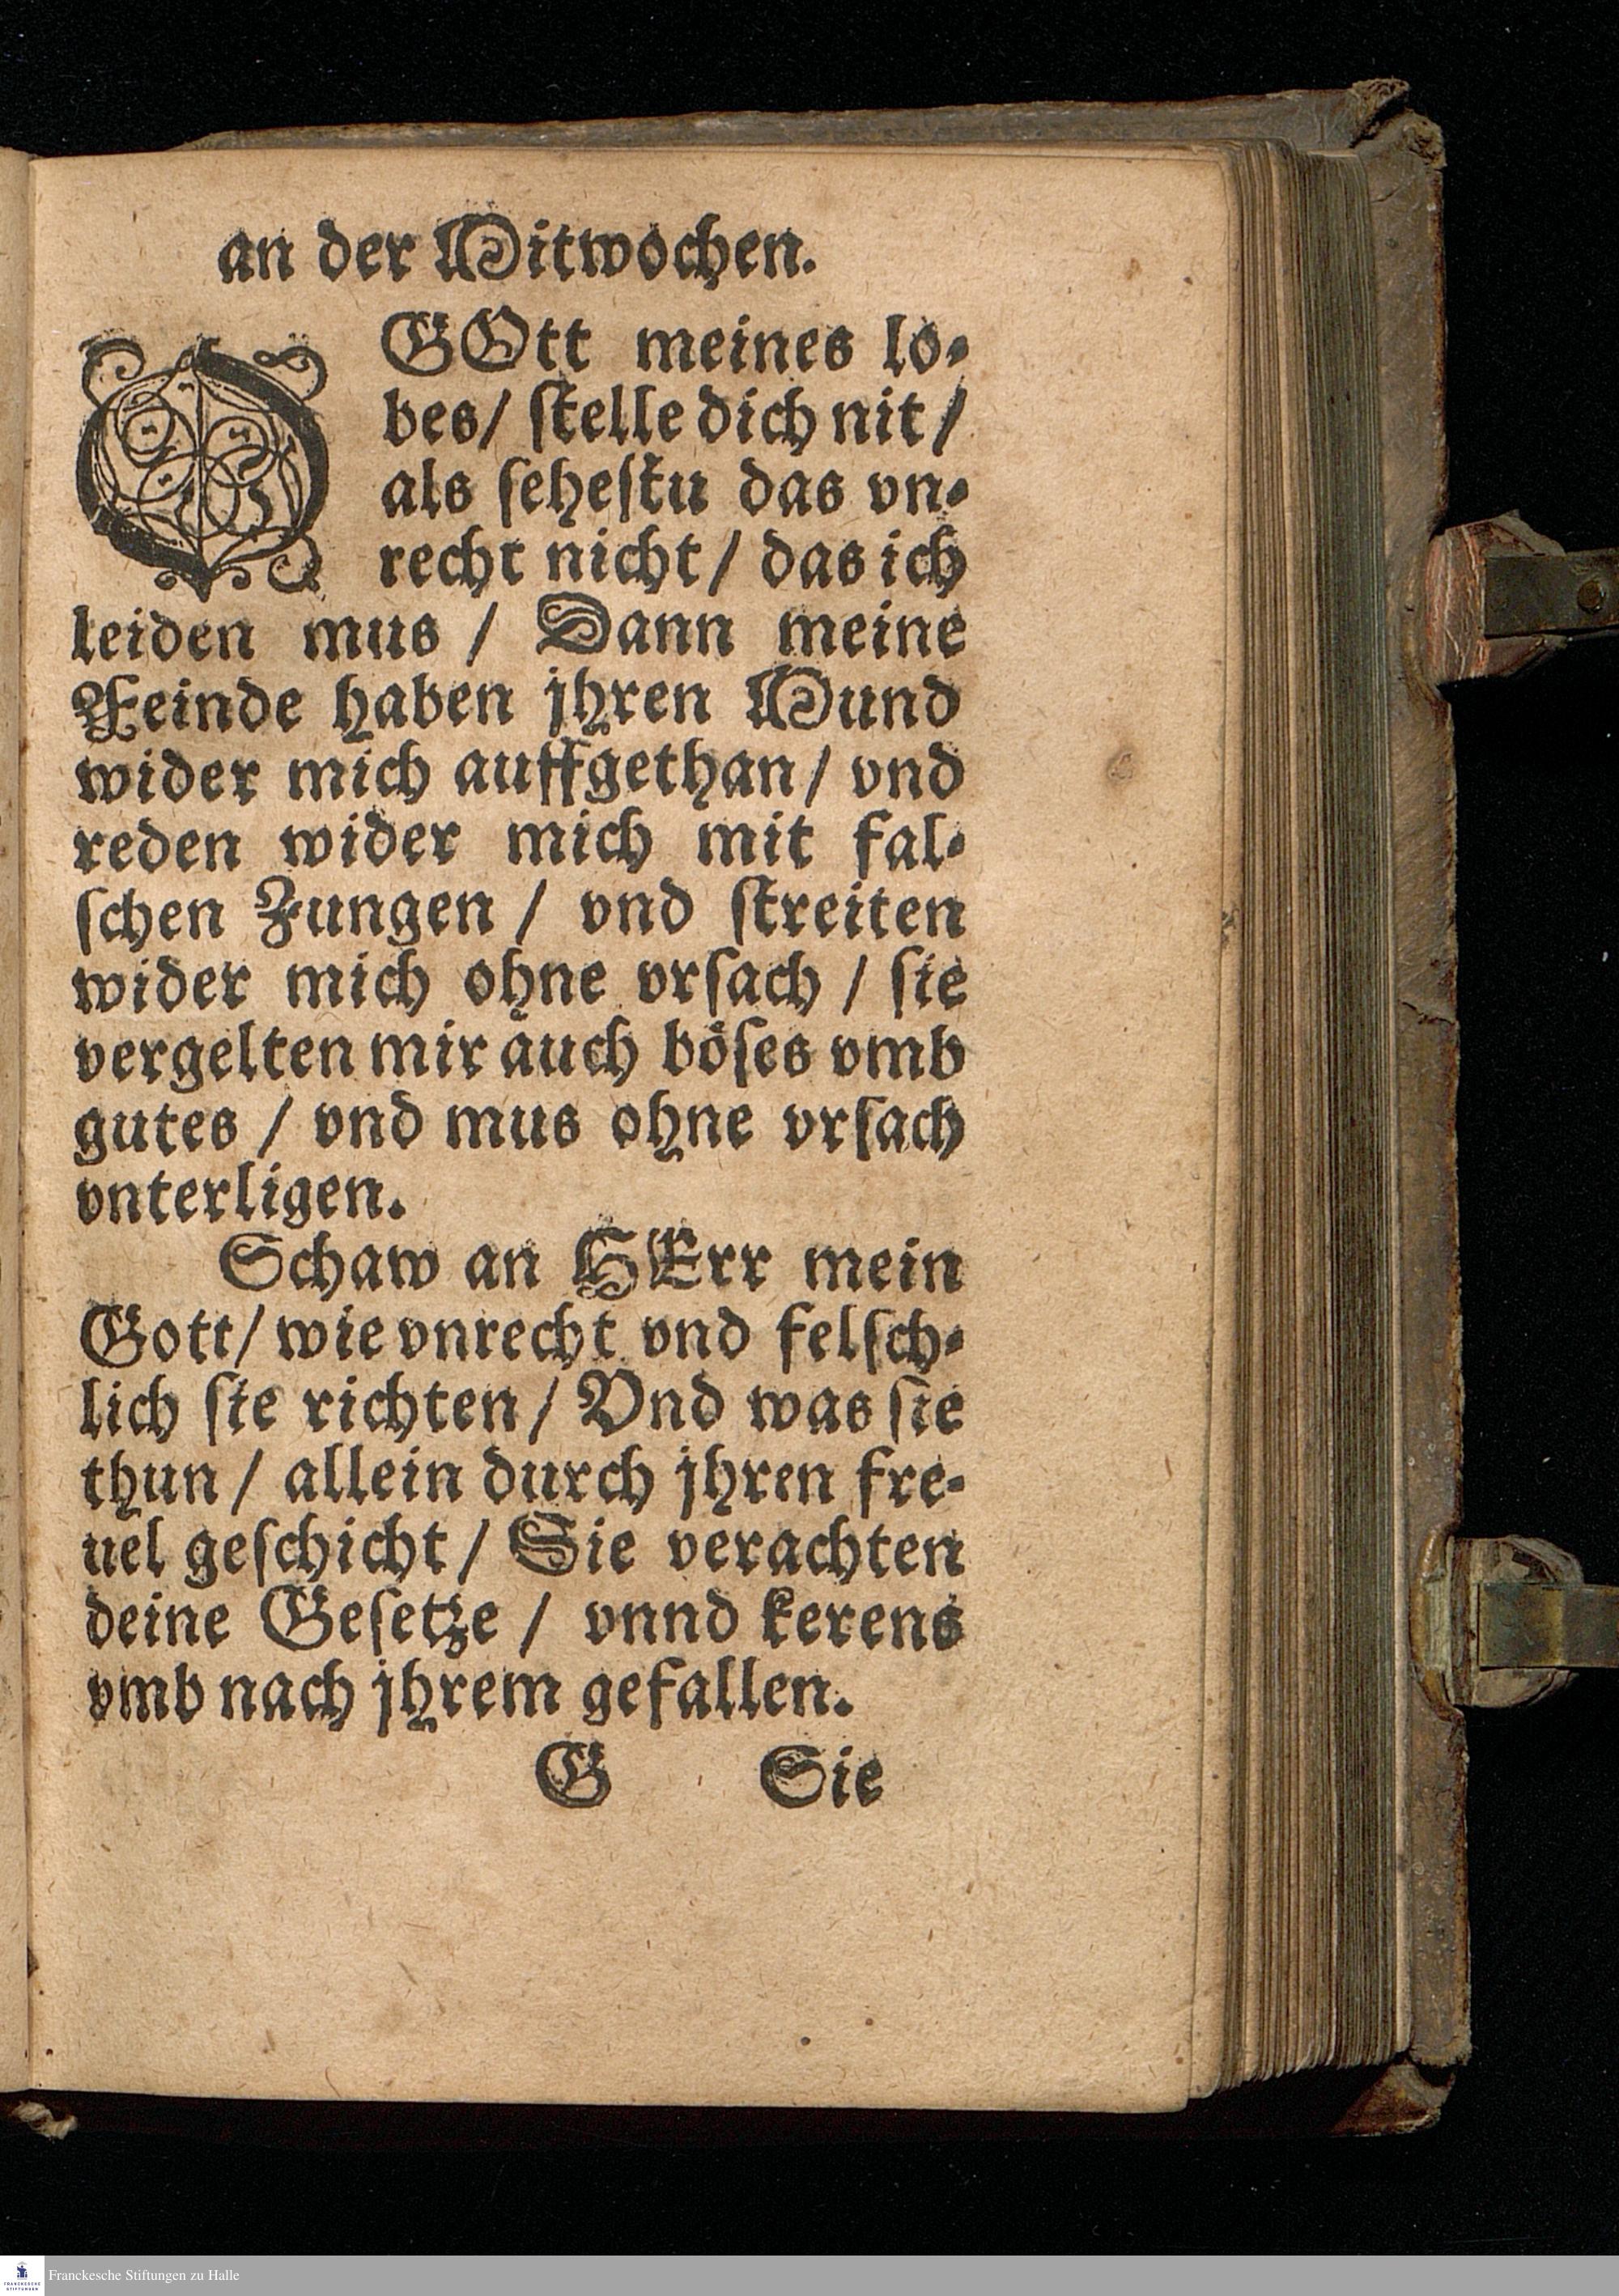 an der Mitwochen.
O GOtt meines lo-
bes/ ſtelle dich nit/
als ſeheſtu das vn-
recht nicht/ das ich
leiden mus / Dann meine
Feinde haben jhren Mund
wider mich auffgethan/ vnd
reden wider mich mit fal-
ſchen Zungen / vnd ſtreiten
wider mich ohne vrſach / ſie
vergelten mir auch böſes vmb
gutes / vnd mus ohne vrſach
vnterligen.
Schaw an HErr mein
Gott/ wie vnrecht vnd felſch-
lich ſie richten/ Vnd was ſie
thun/ allein durch jhren fre-
uel geſchicht/ Sie verachten
deine Geſetze / vnnd kerens
vmb nach jhrem gefallen.
G Sie
FRANCKESCHE
STIFTUNGEN
Franckesche Stiftungen zu Halle